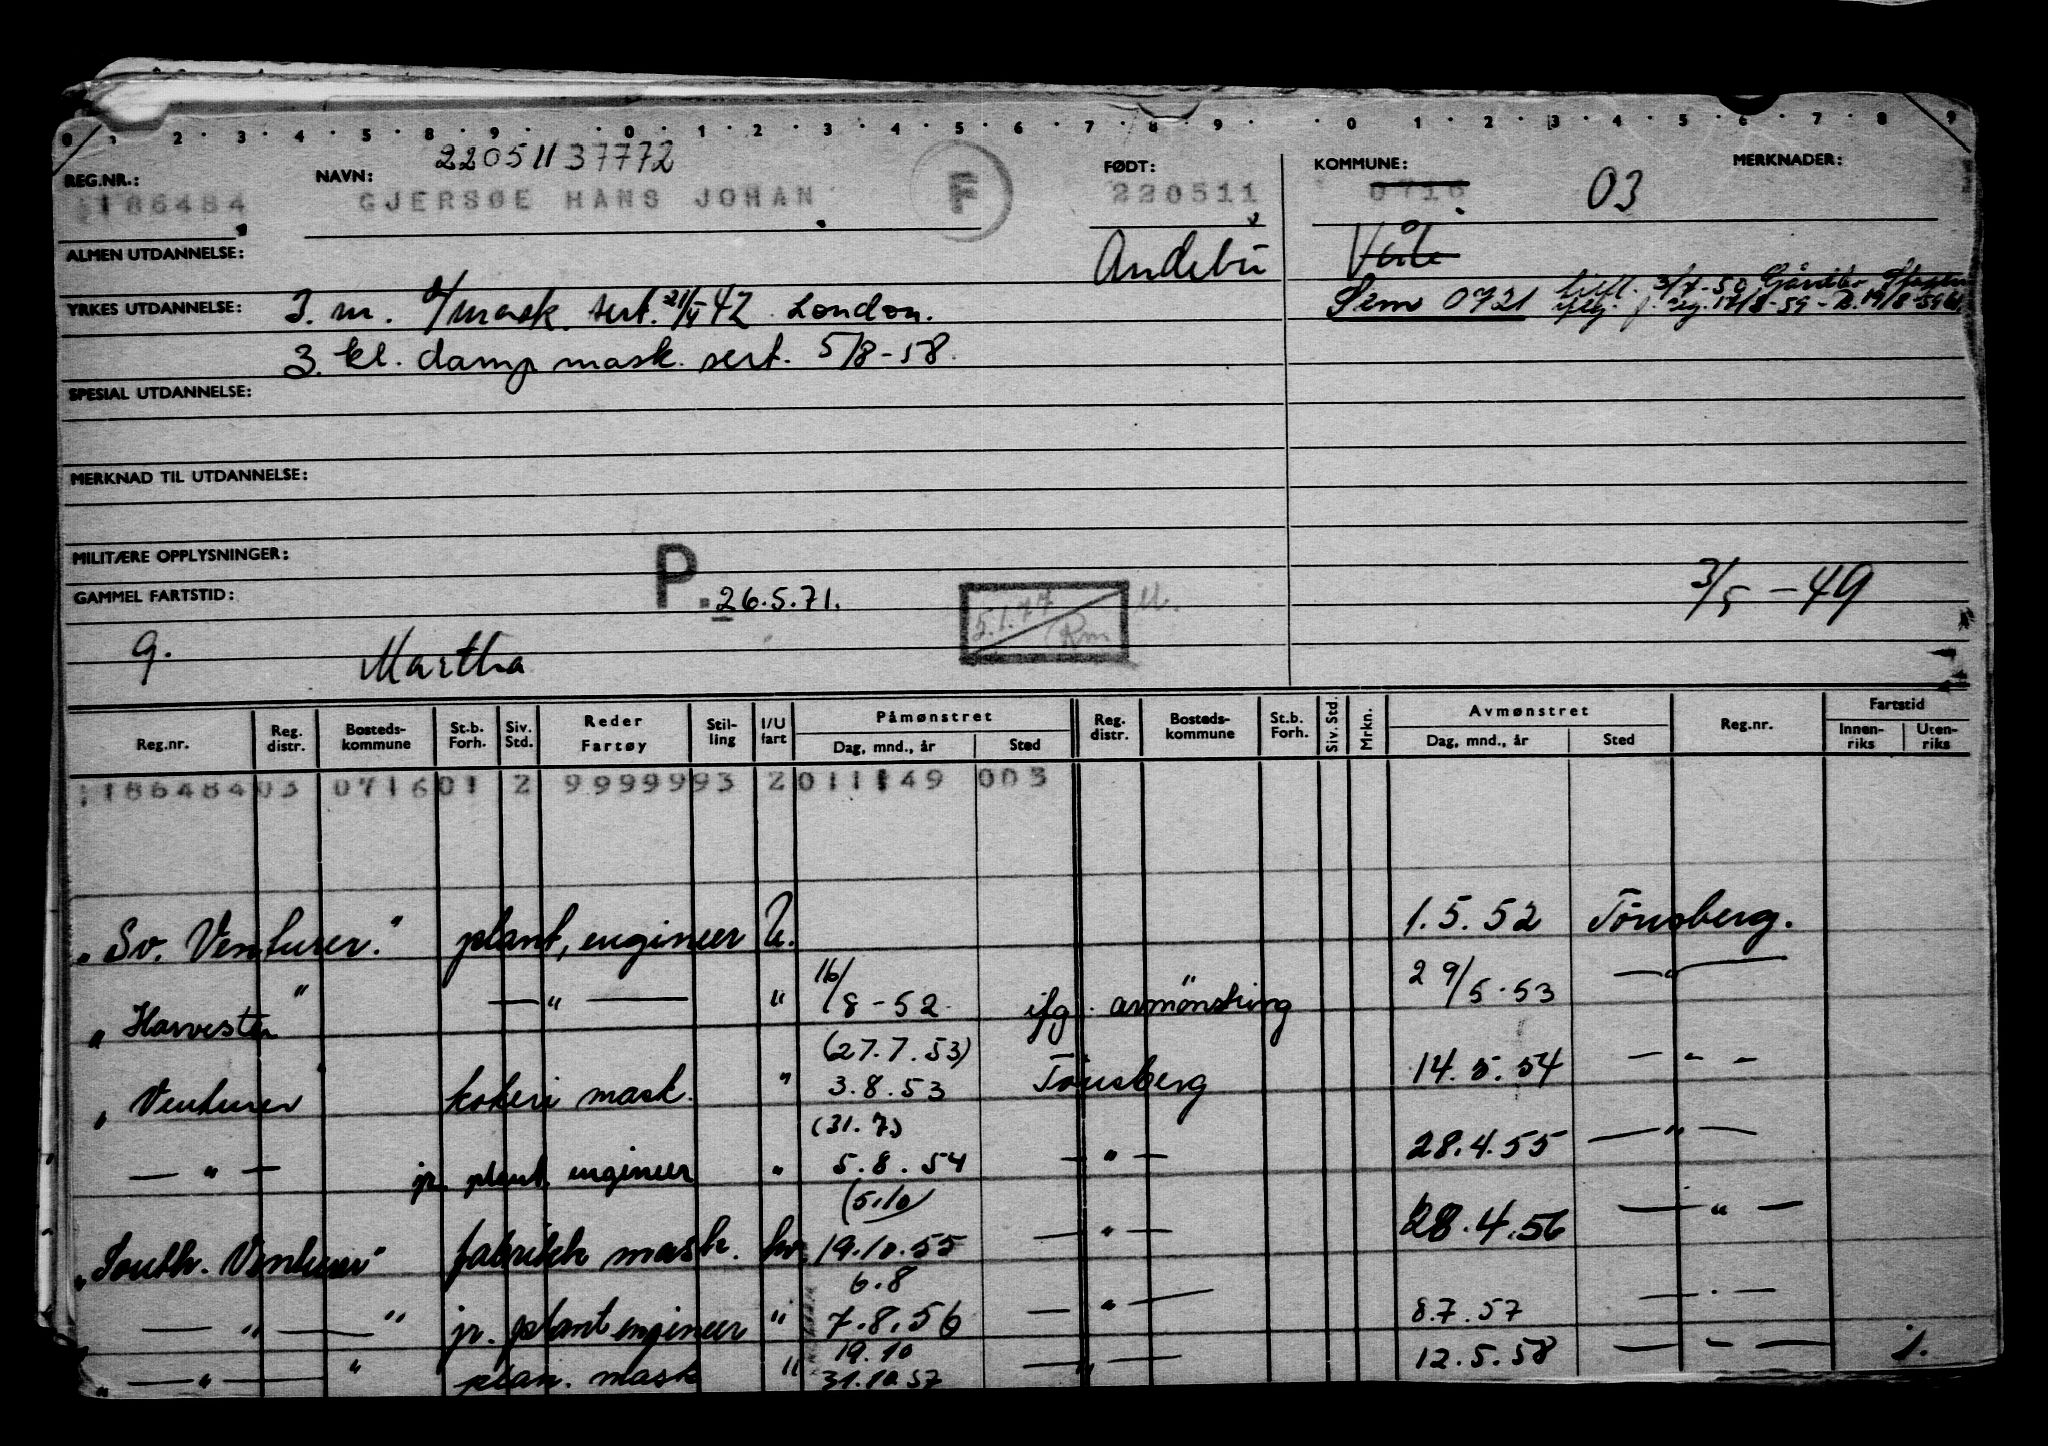 0 1 2 3 4 5 8 9 0 1 2 3 4 5 6 7 8 9 0 1 2 3 4 5 6 7 8 9
22051137772
REG.NR.: NAVN: FØDT: KOMMUNE: MERKNADER:
186484 GJERSØE HANS JOHAN F 220511 0716 03
ALMEN UTDANNELSE: Andebu Våle
YRKES UTDANNELSE: 3. m. mask. sert. 21/5 42 London. Sem 0721
3. kl. damp mask. sert. 5/8-58.
SPESIAL UTDANNELSE:
MERKNAD TIL UTDANNELSE:
MILITÆRE OPPLYSNINGER:
GAMMEL FARTSTID: P. 26.5.71. 5.1.77 Rm 3/5-49
g. Martha
Reg.nr. Reg. distr. Bosteds- kommune St.b. Forh. Siv. Std. Reder Fartøy Stil- ling I/U fart Påmønstret Dag, mnd., år Sted Reg. distr. Bosteds- kommune St.b. Forh. Siv. Std. Mrkn. Avmønstret Dag, mnd., år Sted Reg.nr. Fartstid Innen- riks Uten- riks
186484 03 0716 01 2 99999 93 2 011149 003
"Sv. Venturer." plant, engineer U. 1.5.52 Tönsberg.
"Harvester" — " — " 16/8-52 ifg. avmönstring 29/5-53 — " —
(27.7.53)
"Venturer" kokeri mask. " 3.8.53 Tönsberg 14.5.54 — " —
(31.7)
— " — jr. plant. engineer " 5.8.54 — " — 28.4.55 — " —
(5.10)
"South. Venturer" fabrikk mask. hv. 19.10.55 — " — 28.4.56 — " —
6.8
— " — " jr. plant engineer " 7.8.56 — " — 8.7.57 — " —
19.10
" — " — " plan. mask " 31.10.57 — " — 12.5.58 — " — 1.